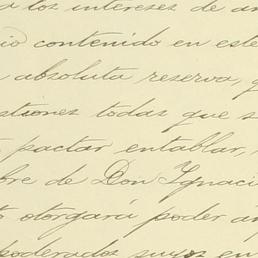 a los intereses de am
io contenido en este
absoluta reserva, q
estiones todas que s
pactar entablar,
bre de Don Ignaci
otorgará poder am
poderados suyos en